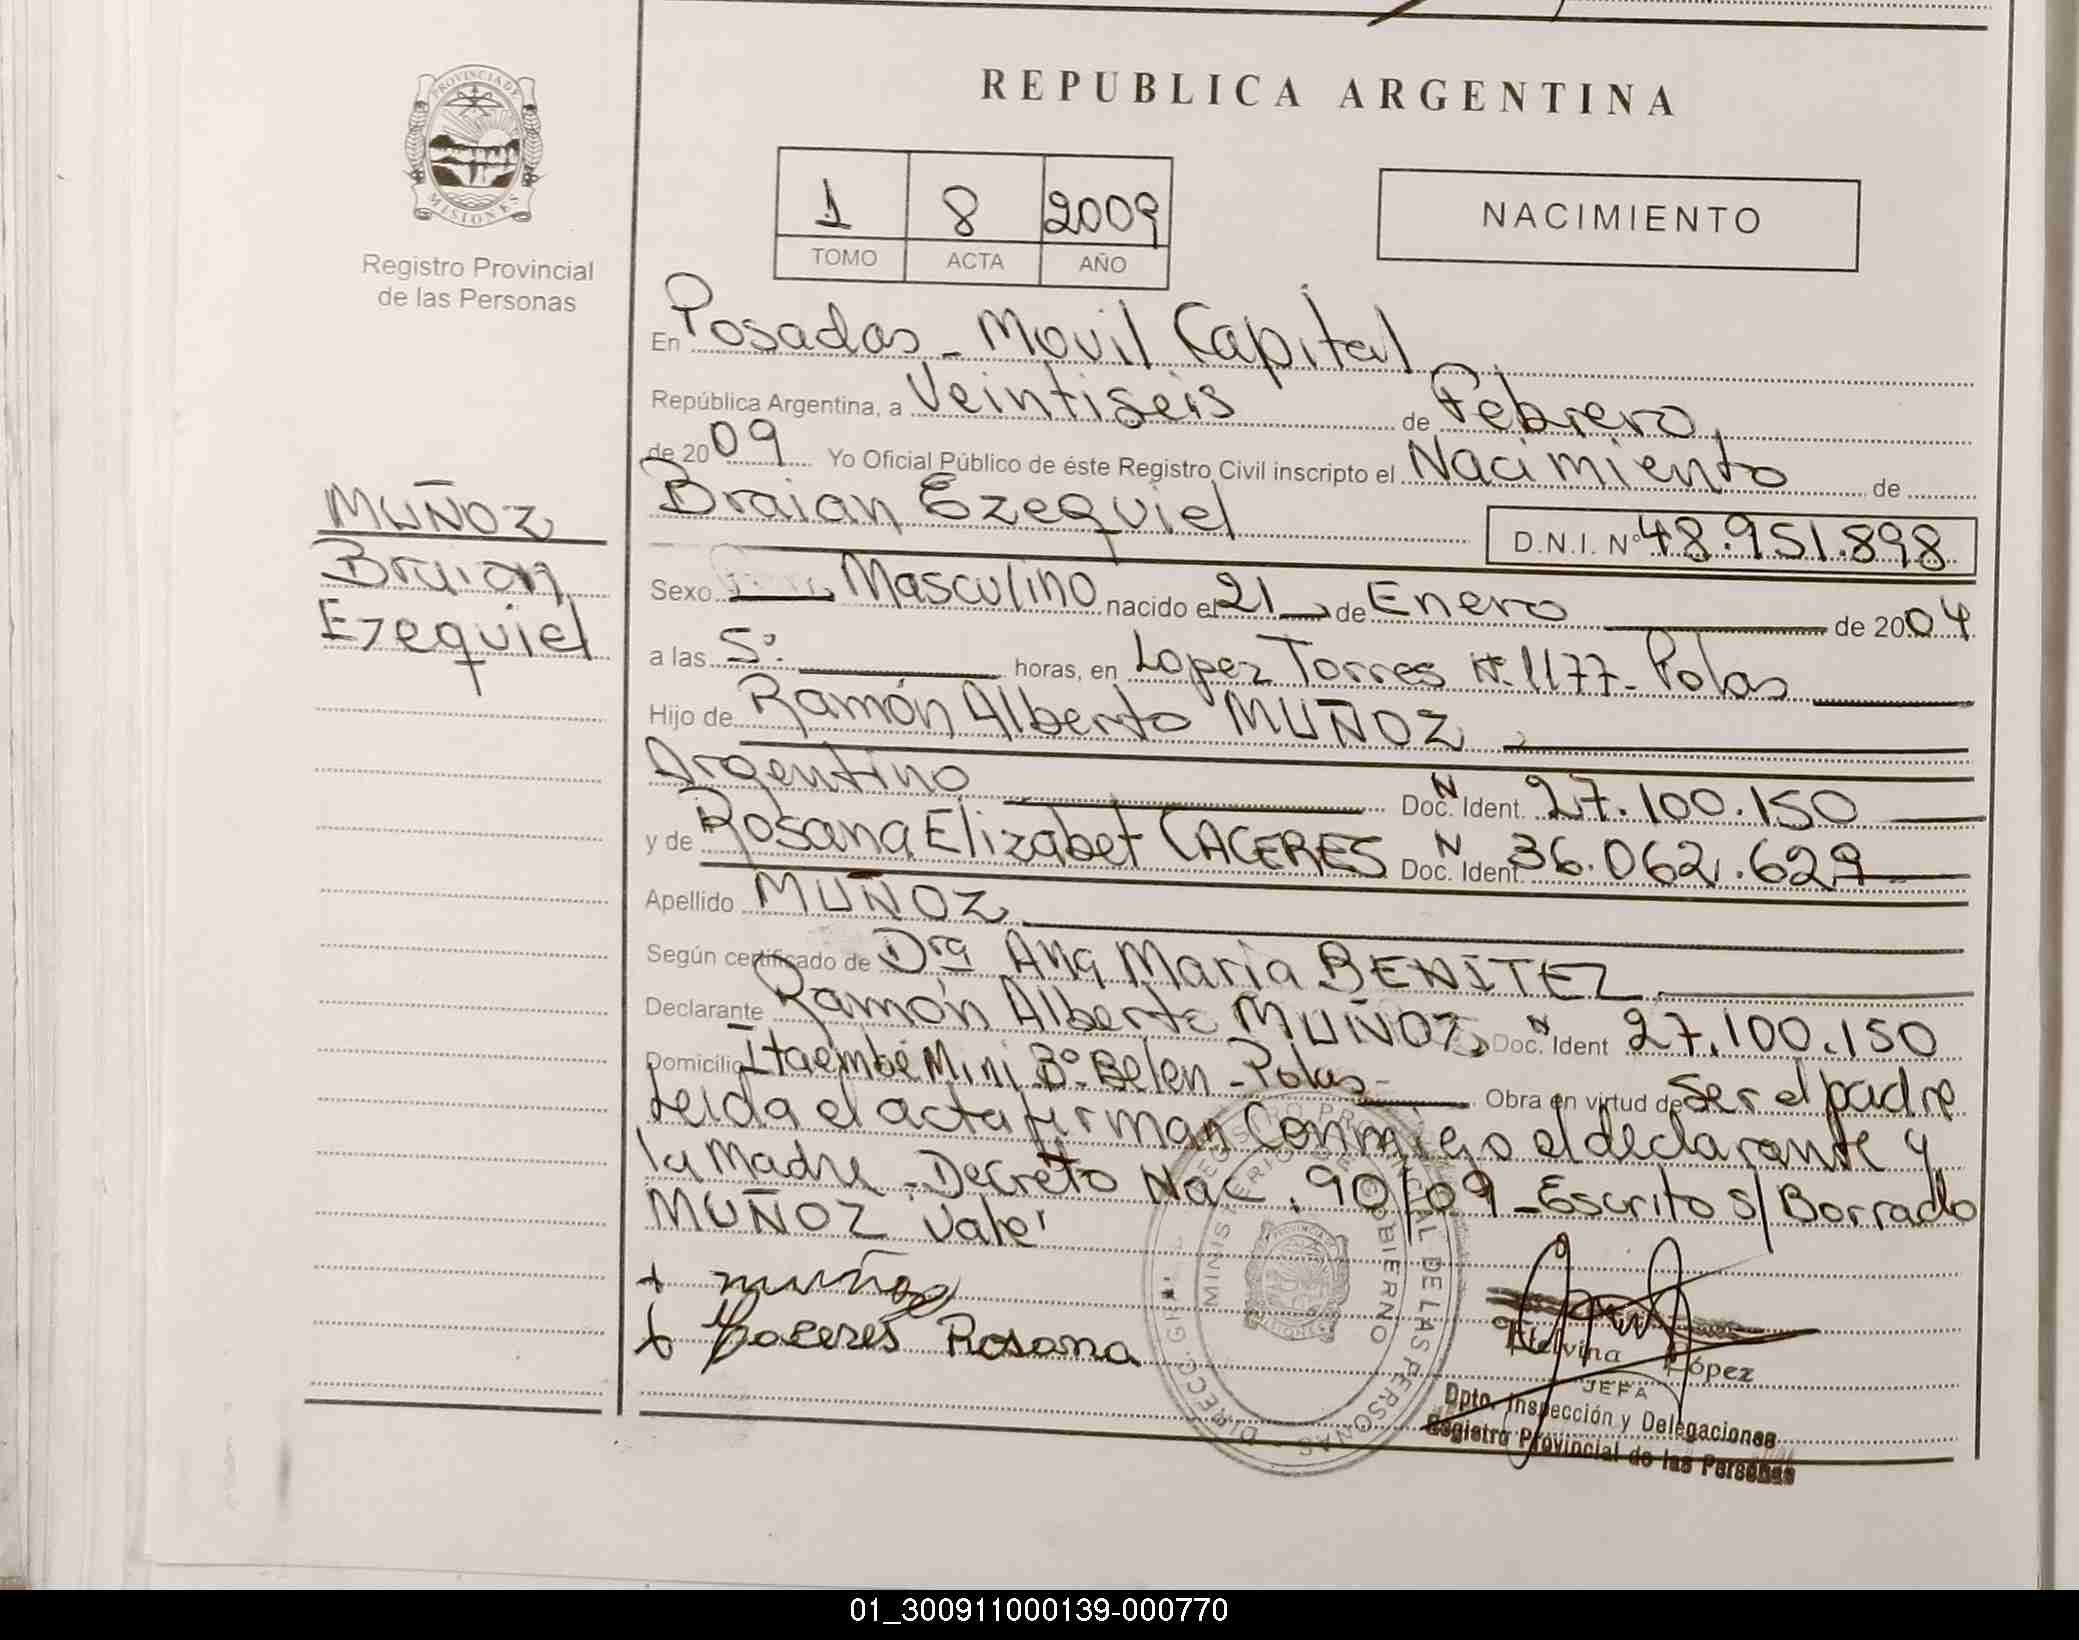 REPUBLICA ARGENTINA
PROVINCIA DE
MISIONES
Registro Provincial
de las Personas
1 8 2009
TOMO ACTA AÑO
NACIMIENTO
En Posadas - Movil Capital
República Argentina, a Veintiseis de Febrero,
de 2009 Yo Oficial Público de éste Registro Civil inscripto el Nacimiento de
MUÑOZ
Braian
Ezequiel
Braian Ezequiel D.N.I. Nº 48.951.898
Sexo Masculino nacido el 21 de Enero de 2004
a las 5º: horas, en Lopez Torres Nº 1177 - Pdas
Hijo de Ramón Alberto MUÑOZ
Argentino Doc. Ident. N 27.100.150
y de Rosana Elizabet CACERES Doc. Ident. N 36.062.629
Apellido MUÑOZ
Según certificado de Dra Ana Maria BENITEZ
Declarante Ramón Alberto MUÑOZ Doc. Ident N 27.100.150
Domicilio Itaembé Mini Bº Belen - Pdas - Obra en virtud de Ser el padre
Leida el acta firman Conmigo el declarante y
la Madre - Decreto Nac. 90/09 - Escrito s/ Borrado
MUÑOZ Vale'
+ muñoz
+ Caceres Rosana
DIRECC. GRAL. REGISTRO PROVINCIAL DE LAS PERSONAS
MINISTERIO DE GOBIERNO
Etelvina López
JEFA
Dpto. Inspección y Delegaciones
Registro Provincial de las Personas
01_300911000139-000770